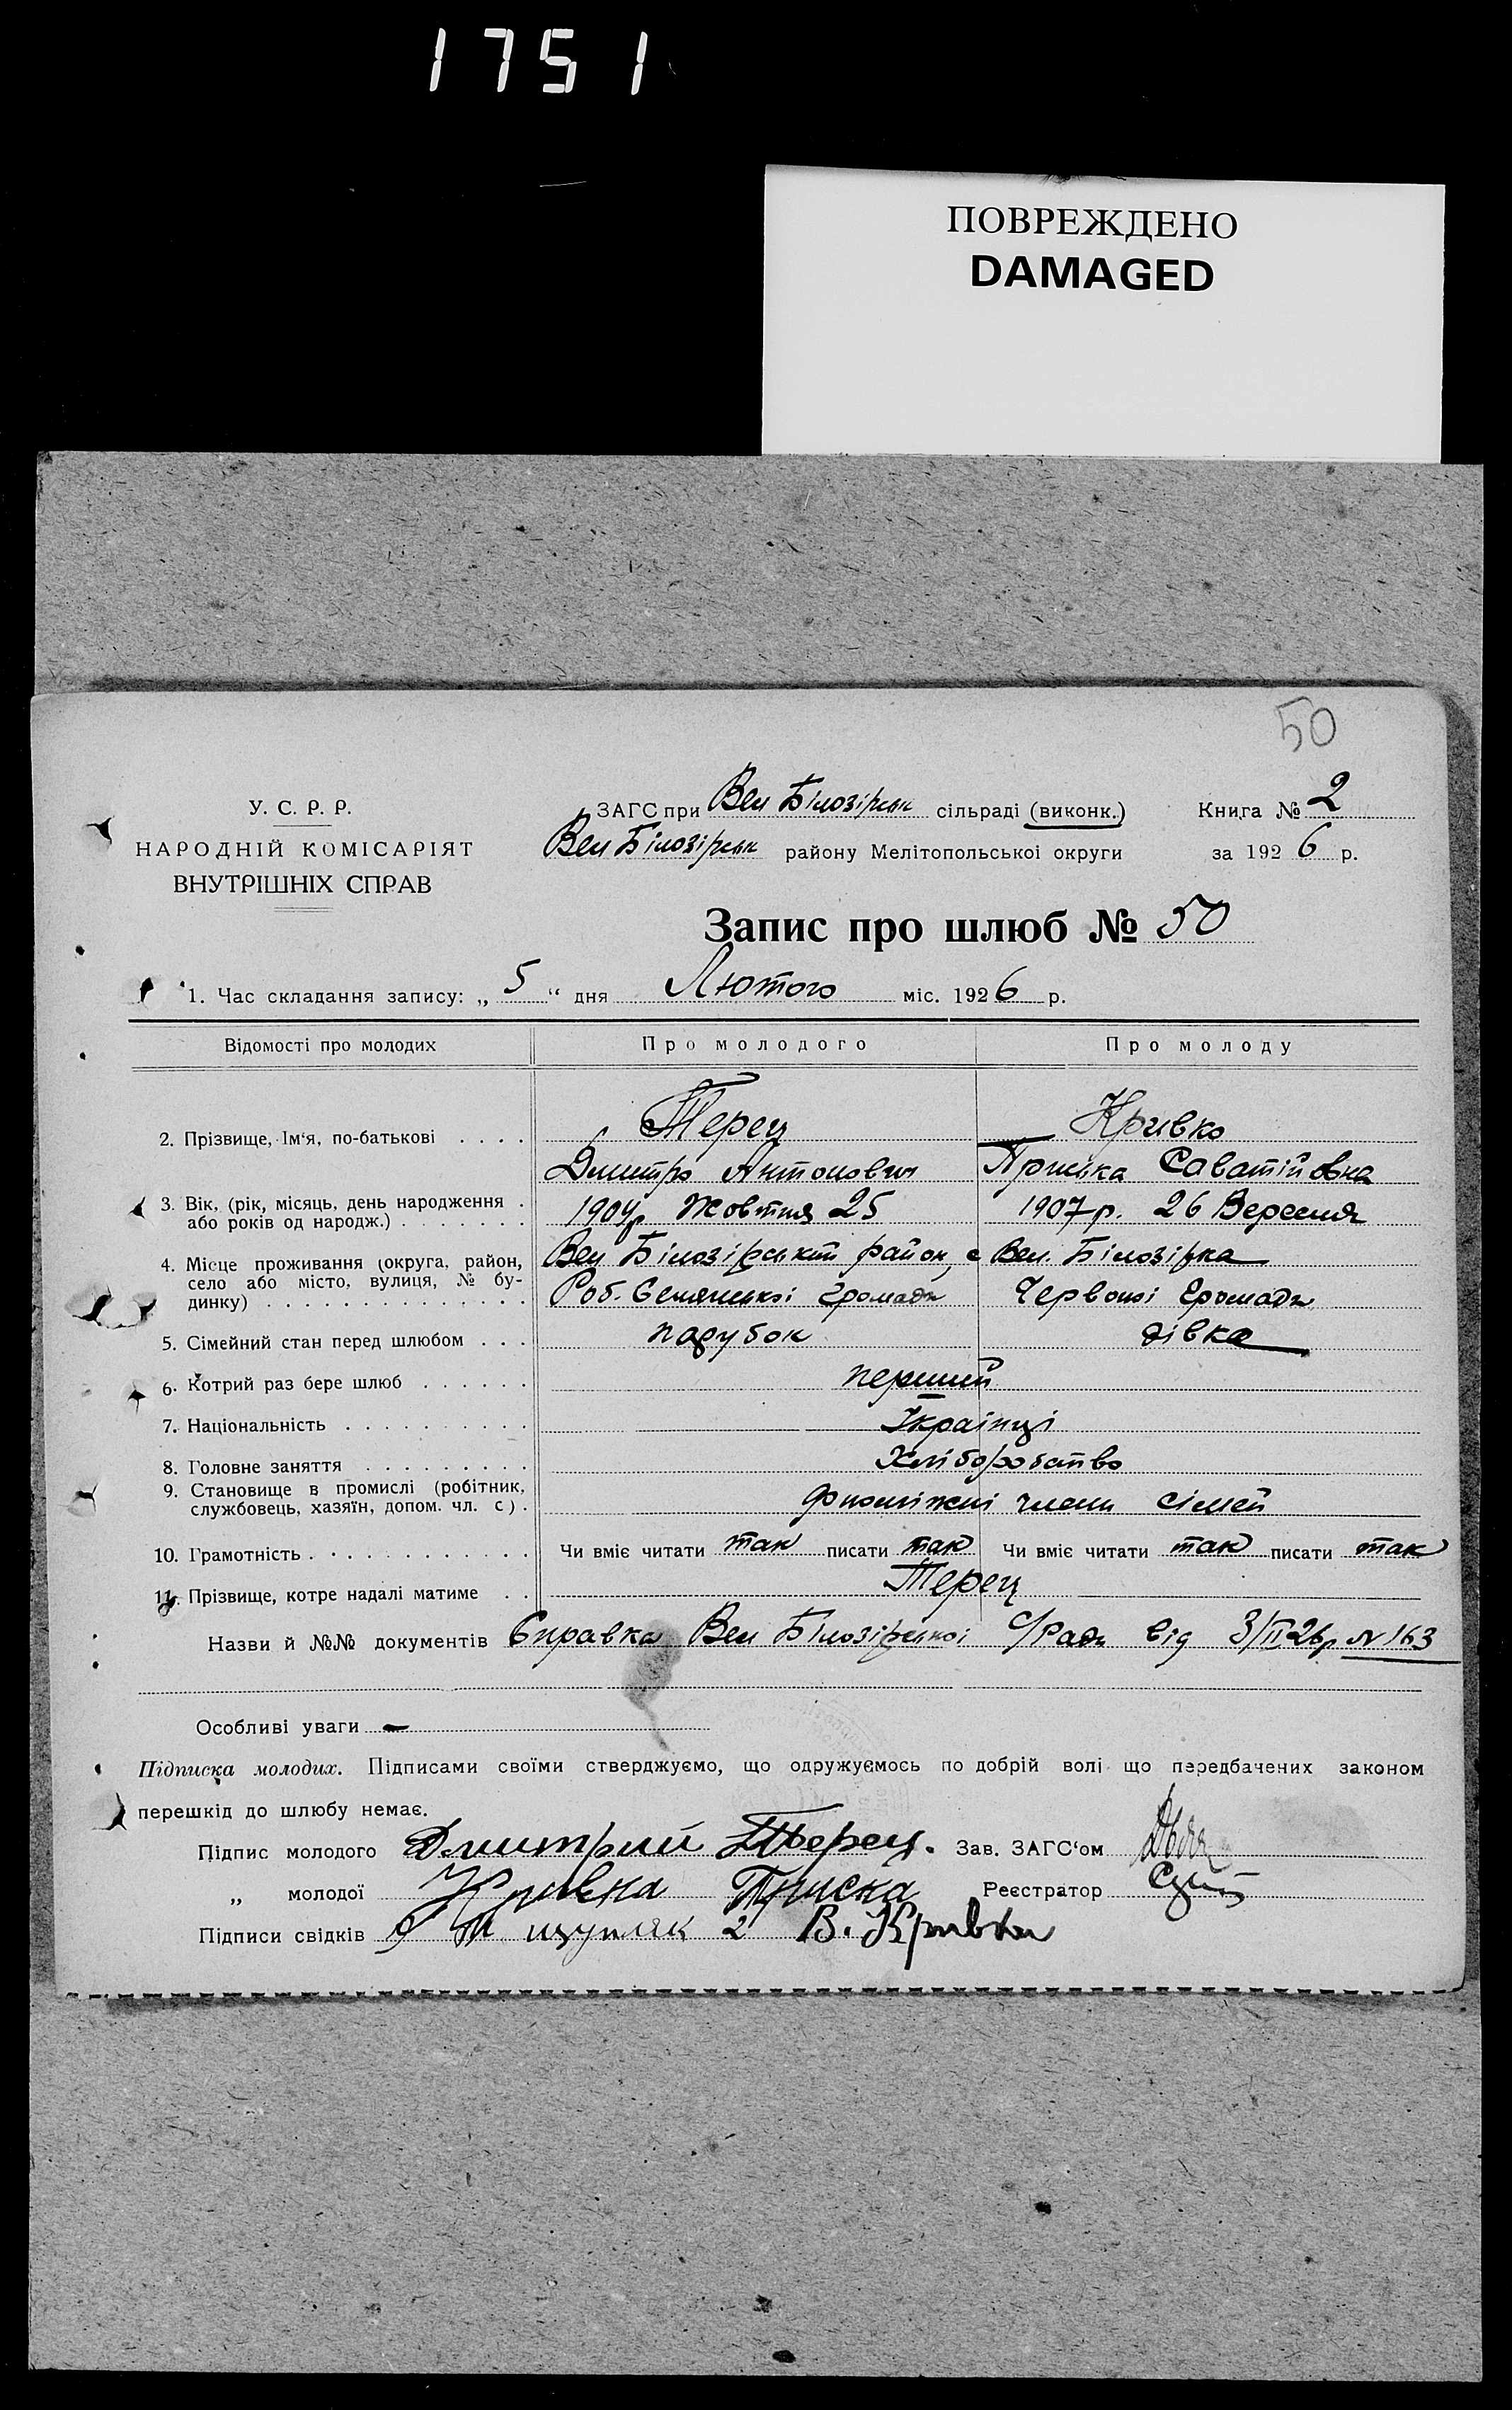 1751
ПОВРЕЖДЕНО
DAMAGED
50
У. С. Р. Р.
НАРОДНІЙ КОМІСАРІЯТ
ВНУТРІШНІХ СПРАВ
ЗАГС при Вел Білозірськ сільраді (виконк.)
Вел Білозірськ району Мелітопольської округи
Книга № 2
за 1926 р.
Запис про шлюб № 50
1. Час складання запису: „5“ дня Лютого міс. 1926 р.
Відомості про молодих
Про молодого
Про молоду
2. Прізвище, Ім'я, по-батькові . . . .
Терец
Кривко
Дмитро Антонович
Приська Саватійовна
3. Вік, (рік, місяць, день народження .
або років од народж.) . . . . . . .
1904р Жовтня 25
1907 р. 26 Вересня
4. Місце проживання (округа, район,
село або місто, вулиця, № бу-
динку) . . . . . . . . . . . . . .
Вел Білозірський район, с Вел. Білозірка
Роб. Селянської громади
Червоної Громади
5. Сімейний стан перед шлюбом . . .
парубок
дівка
6. Котрий раз бере шлюб . . . . . .
перший
7. Національність . . . . . . . . . .
Українці
8. Головне заняття . . . . . . . . .
Хліборобство
9. Становище в промислі (робітник,
службовець, хазяїн, допом. чл. с) .
члени сімей
10. Грамотність . . . . . . . . . . . .
Чи вміє читати так писати так
Чи вміє читати так писати так
11. Прізвище, котре надалі матиме . .
Терец
Назви й №№ документів Справка Вел Білозірської С/Ради від 3/II 26р N 163
Особливі уваги —
Підписка молодих. Підписами своїми стверджуємо, що одружуємось по добрій волі що передбачених законом
перешкід до шлюбу немає.
Підпис молодого Дмитрий Терец.
Зав. ЗАГС'ом
„ молодої Кривка Приска
Реєстратор
Підписи свідків щупляк 2 В. Кривко